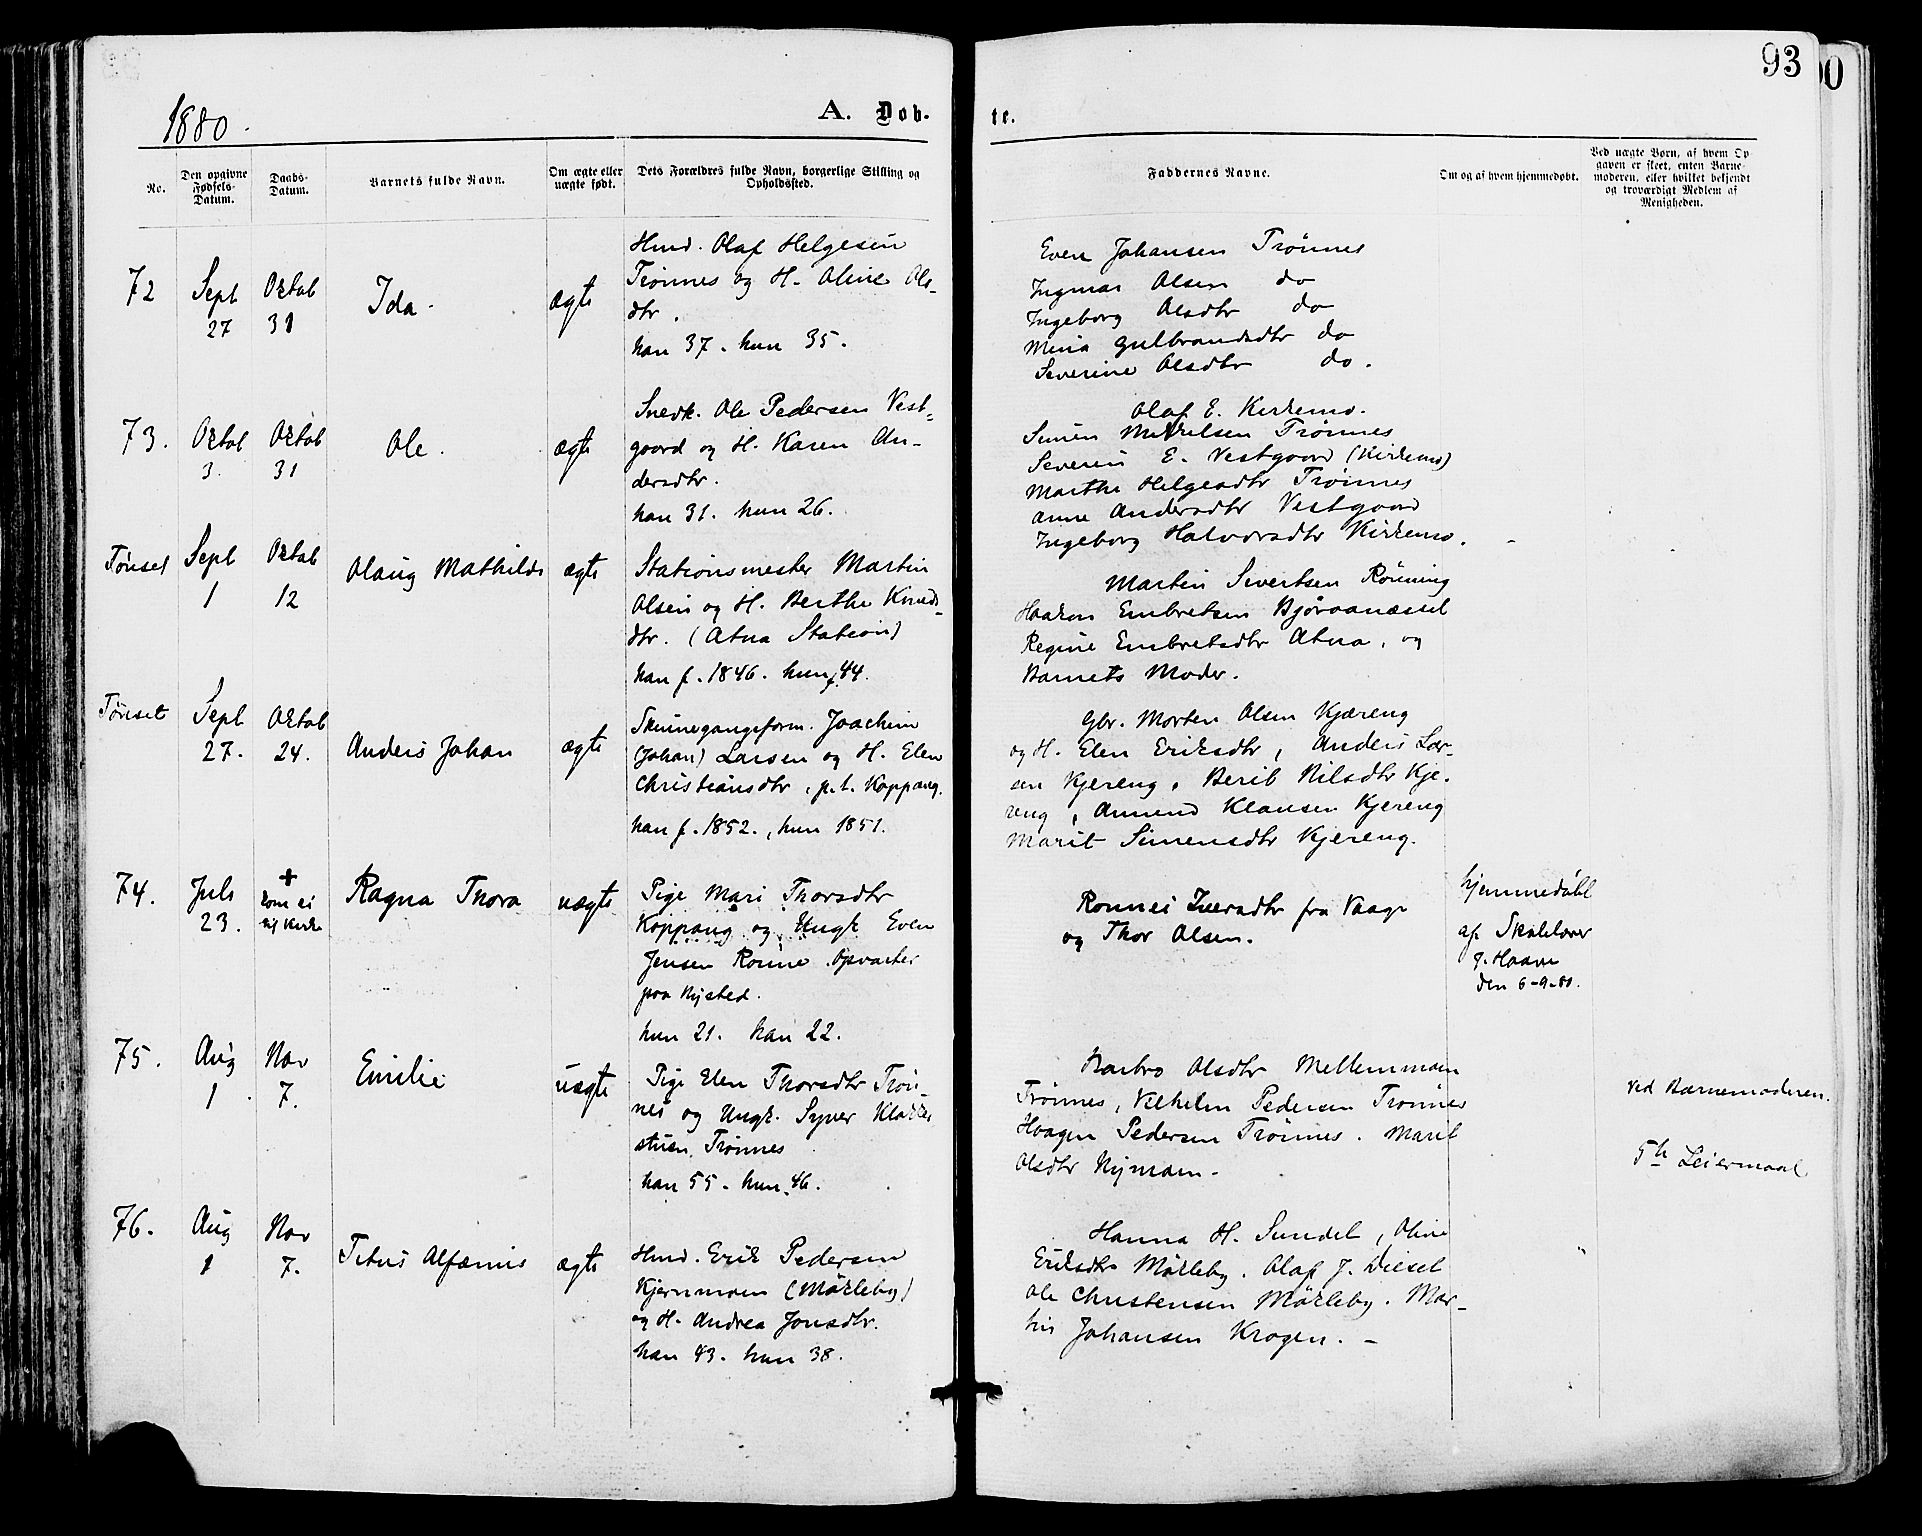 93
1880.
A. Døb-
te.
No.
Den opgivne
Fødsels-
Datum.
Daabs-
Datum.
Barnets fulde Navn.
Om ægte eller
uægte født.
Dets Forældres fulde Navn, borgerlige Stilling og
Opholdssted.
Faddernes Navne.
Om og af hvem hjemmedøbt.
Ved uægte Børn, af hvem Op-
gaven er skeet, enten Barne-
moderen, eller hvilket bekjendt
og troværdigt Medlem af
Menigheden.
72
Sept
27
Oktob
31
Ida.
ægte
Hmd. Olaf Helgesen
Trønnes og H. Oline Ols-
dtr.
han 37. hun 35.
Even Johansen Trønnes
Ingmar Olsen do
Ingeborg Olsdtr do
Mina Gulbrandsdtr do
Severine Olsdtr do.
73.
Oktob
3.
Oktob
31
Ole.
ægte
Snedk. Ole Pedersen Vest-
gaard og H. Karen An-
dersdtr.
han 31. hun 26.
Olaf E. Kirkemo.
Simen Mikkelsen Trønnes
Severin E. Vestgaard (Kirkemo)
Marthe Helgesdtr Trønnes
Anne Andersdtr Vestgaard
Ingeborg Halvorsdtr Kirkemo.
Tønset
Sept
1
Oktob
12
Olaug Mathilde
ægte
Stationsmester Martin
Olsen og H. Berthe Knuds-
dtr. (Atna Station)
han f. 1846. hun f. 44.
Martin Sivertsen Rønning
Haakon Embretsen Bjøraanæsset
Regine Embretsdtr Atna, og
Barnets Moder.
Tønset
Sept
27.
Oktob
24.
Anders Johan
ægte
Skinnegangsform. Joachim
(Johan) Larsen og H. Elen
Christiansdtr, p.t. Koppang.
han f. 1852., hun 1851.
Gbr. Morten Olsen Kjæreng
og H. Elen Eriksdtr, Anders Lar-
sen Kjereng, Berit Nilsdtr Kje-
reng, Amund Klausen Kjereng
Marit Simensdtr Kjereng.
74.
Juli
23.
+
kom ei
til Kirke
Ragna Thora
uægte
Pige Mari Thorsdtr
Koppang og Ungk. Even
Jensen Ronne. Opvarter
paa Nysted.
hun 21. han 22.
Ronnei Iversdtr fra Vaage
og Thor Olsen.
hjemmedøbt
af Skolelærer
J. Haave
den 6-9-80.
75.
Aug
1
Nov
7.
Emilie
uægte
Pige Elen Thorsdtr Trøn-
nes og Ungk. Syver Klokker
stuen. Trønnes
han 55. hun 46.
Barbro Olsdtr Mellemmoen
Trønnes, Vilhelm Pedersen Trønnes
Haagen Pedersen Trønnes. Marit
Olsdtr Nymoen.
ved Barnemoderen.
5te Leiermaal
76.
Aug
1
Nov
7.
Titus Alfænius
ægte
Hmd. Erik Pedersen
Kjernmoen (Mörkeby)
og H. Andrea Jonsdtr.
han 43. hun 38.
Hanna H. Sundet, Oline
Eriksdtr Mörkeby. Olaf J. Dieset
Ole Christensen Mörkeby. Mar-
tin Johansen Krogen. -